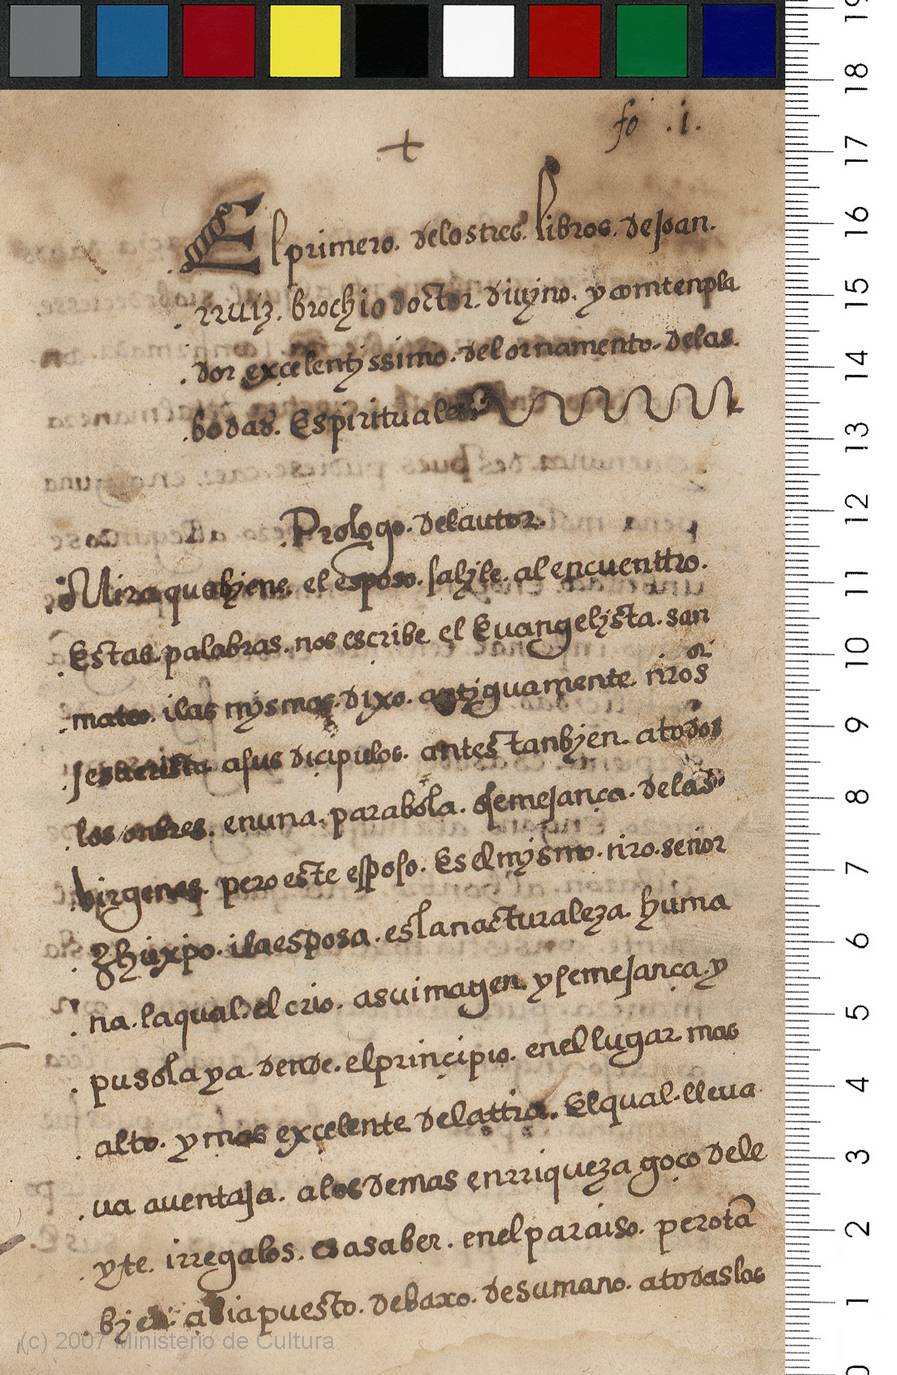 fo .i.
+
El primero. delostres. libros. de Joan.
rruiz. brochio doctor. diuyno. y comtenpla
.dor excelentissimo. del ornamento. delas.
.bodas. Espirituales
.Prologo. delautor.
Mira quebyene. el esposo. salyle. al encuenttro.
.Estas palabras. nos escribe el Euangelysta. san
.mateo. ilas mysmas. dixo. antiguamente nros
Jesucristo asus dicipulos. antes tanbyen. atodos
.los onbres. enuna. parabola. semejança. delas
.birgenes. pero este esposo. Es el mysmo. nro. señor
. Jhuxpo. ilaesposa. es la nacturaleza. huma
. na. laqual. el crio. asuimagen. y semejança. y
. pusola ya dende. elprinçipio. enel lugar mas
. alto. y mas exçelente delattrra. Elqual. lleua
. ua auentaja. alos demas enrriqueza goço dele
. yte. irregalos. es asaber. enel paraiso. perotā
. byen abiapuesto. debaxo. desumano. atodaslas
(c) 2007 Ministerio de Cultura
19
18
17
16
15
14
13
12
11
10
9
8
7
6
5
4
3
2
1
0